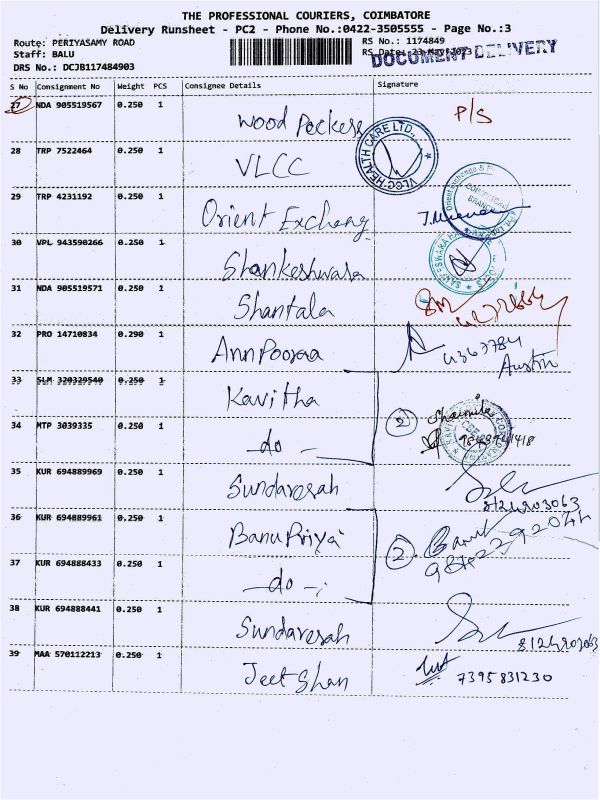 THE PROFESSIONAL COURIERS, COIMBATORE
Delivery Runsheet - PC2 - Phone No.:0422-3505555 - Page No.:3
Route: PERIYASAMY ROAD
RS No.: 1174849
Staff: BALU
RS Date: 23-May-2023
DOCUMENT DELIVERY
DRS No.: DCJB117484903
S No Consignment No Weight PCS Consignee Details Signature
27 NDA 905519567 0.250 1 Wood Peckers P/S
28 TRP 7522464 0.250 1 VLCC VLCC HEALTH CARE LTD.,
29 TRP 4231192 0.250 1 Orient Exchang
30 VPL 943590266 0.250 1 Shankeshwara
31 NDA 905519571 0.250 1 Shantala
32 PRO 14710834 0.290 1 AnnPooraa Austin
33 SLM 320329540 0.250 1 Kavitha
34 MTP 3039335 0.250 1 - do - 2 Sharmila
35 KUR 694889969 0.250 1 Sundaresah 8124903063
36 KUR 694889961 0.250 1 BanuPriya
37 KUR 694888433 0.250 1 - do - 2
38 KUR 694888441 0.250 1 Sundaresah 8124903063
39 MAA 570112213 0.250 1 Jeet Shan 7395831230